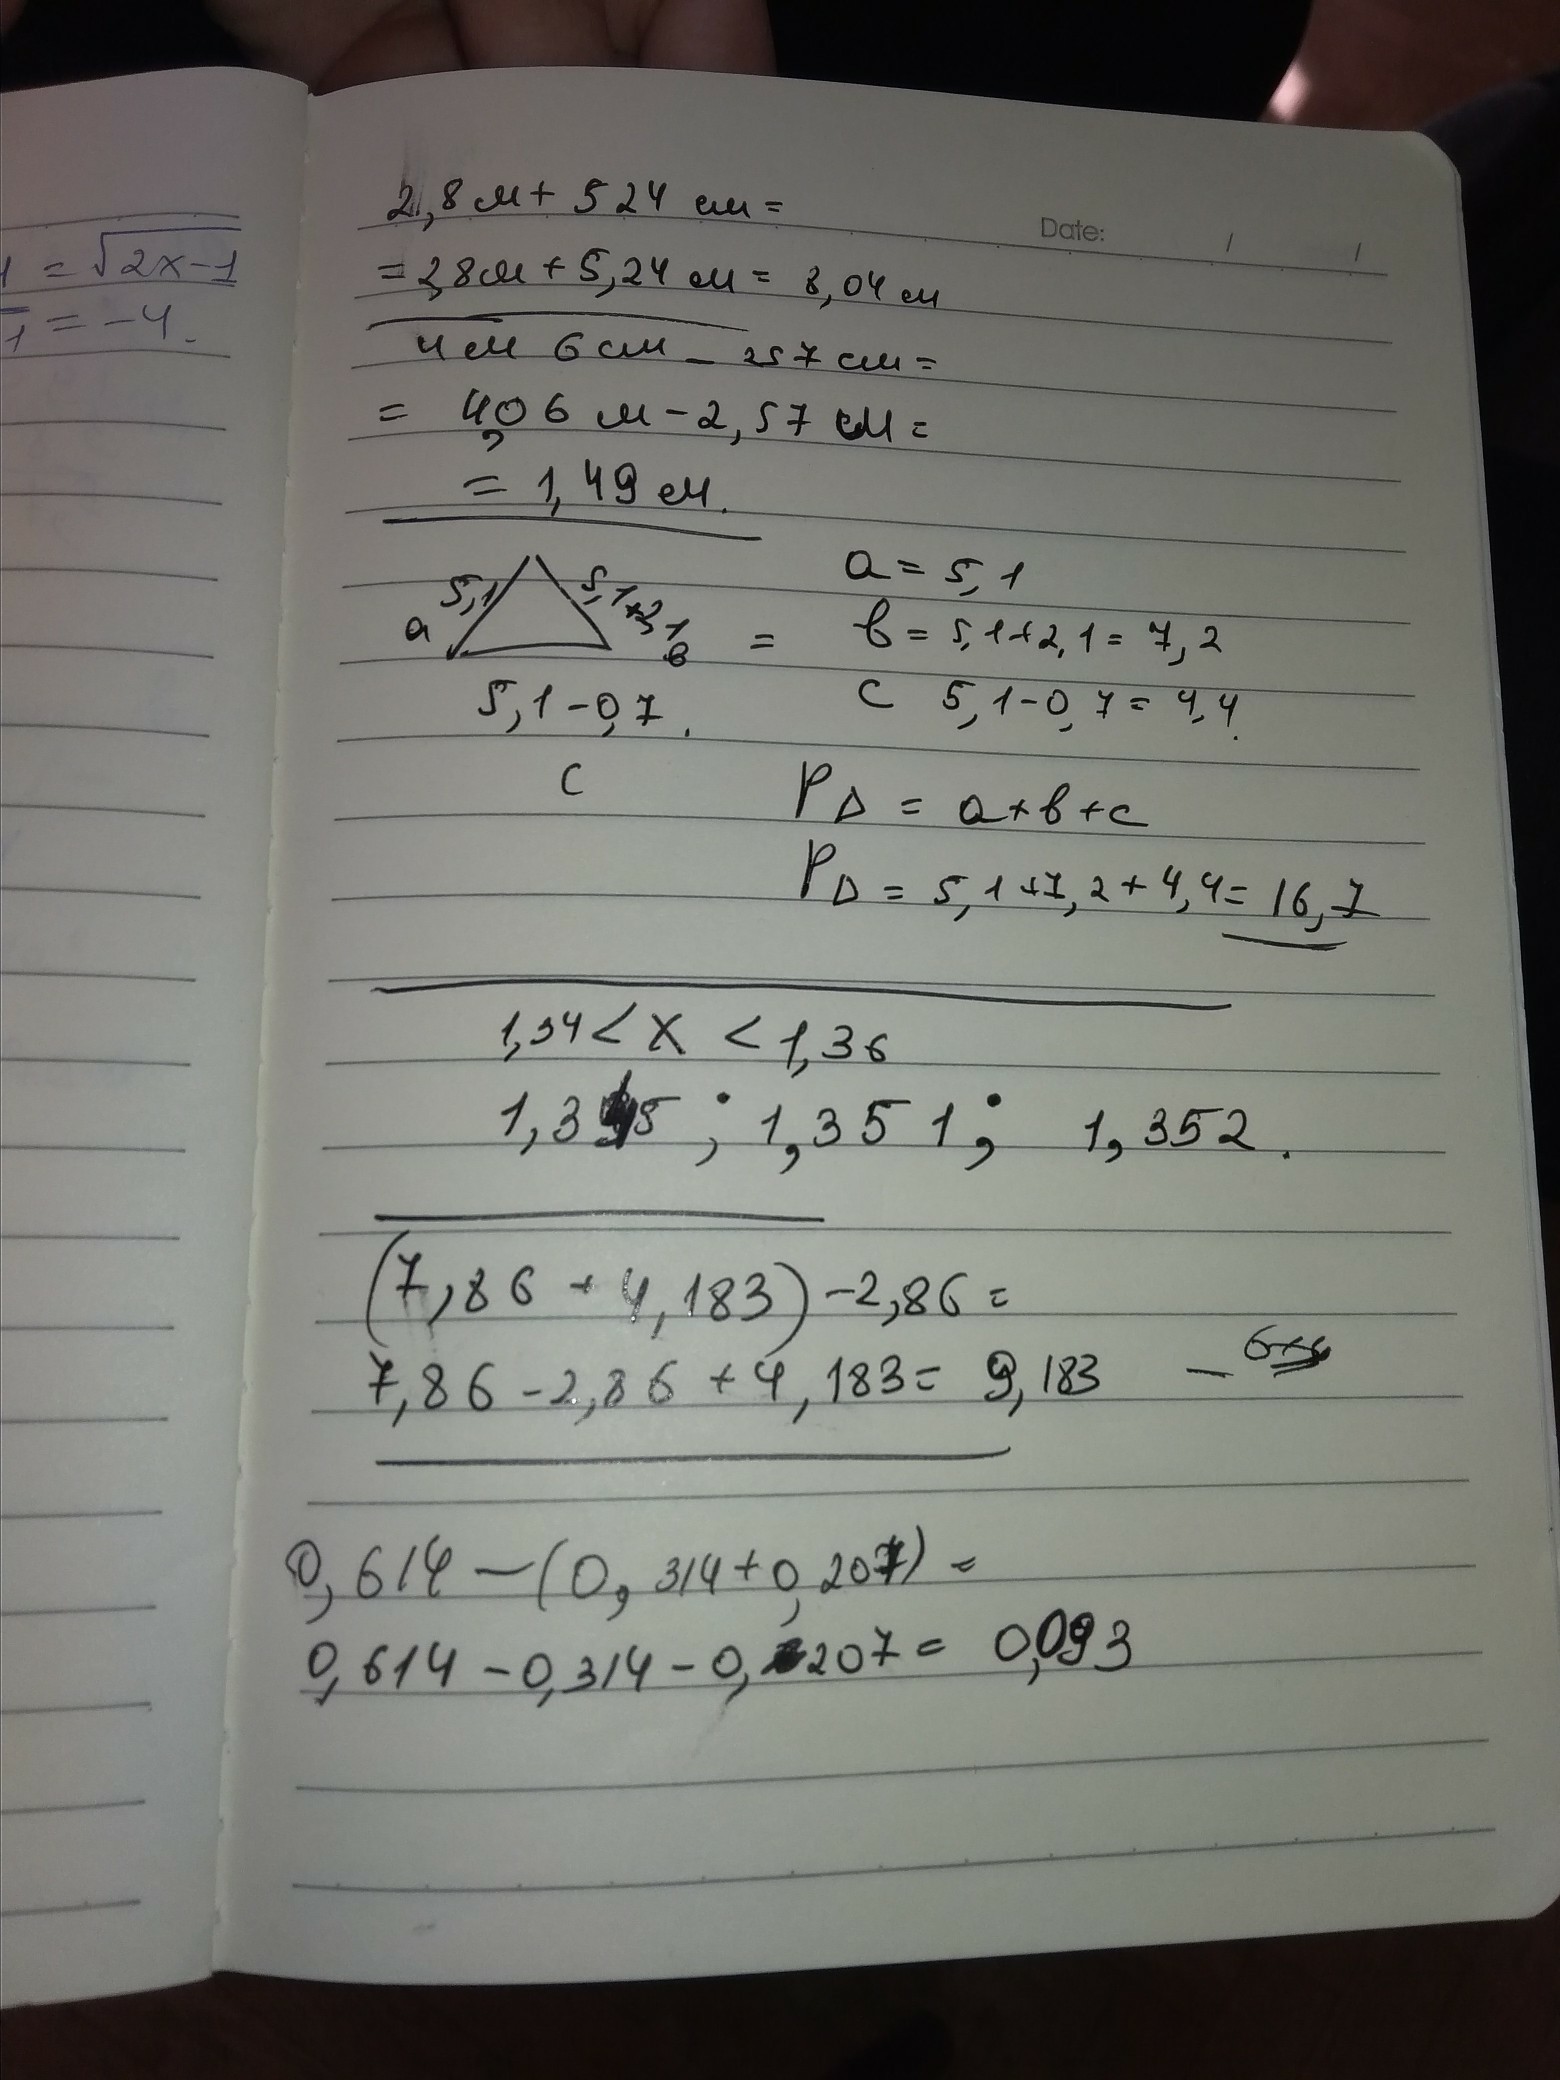 1 = √2x-1
1 = -4.
Date: / /
2,8 м + 524 см =
= 2,8 м + 5,24 м = 8,04 м
4 м 6 см - 257 см =
= 4,06 м - 2,57 м =
= 1,49 м.
5,1 5,1+2,1
a в
5,1-0,7.
c
= a = 5,1
в = 5,1+2,1 = 7,2
c 5,1-0,7 = 4,4.
P△ = a+в+c
P△ = 5,1+7,2+4,4 = 16,7
1,34 < x < 1,36
1,345 ; 1,351 ; 1,352.
(7,86 + 4,183) - 2,86 =
7,86 - 2,86 + 4,183 = 9,183 -
0,614 - (0,314+0,207) =
0,614 - 0,314 - 0,207 = 0,093